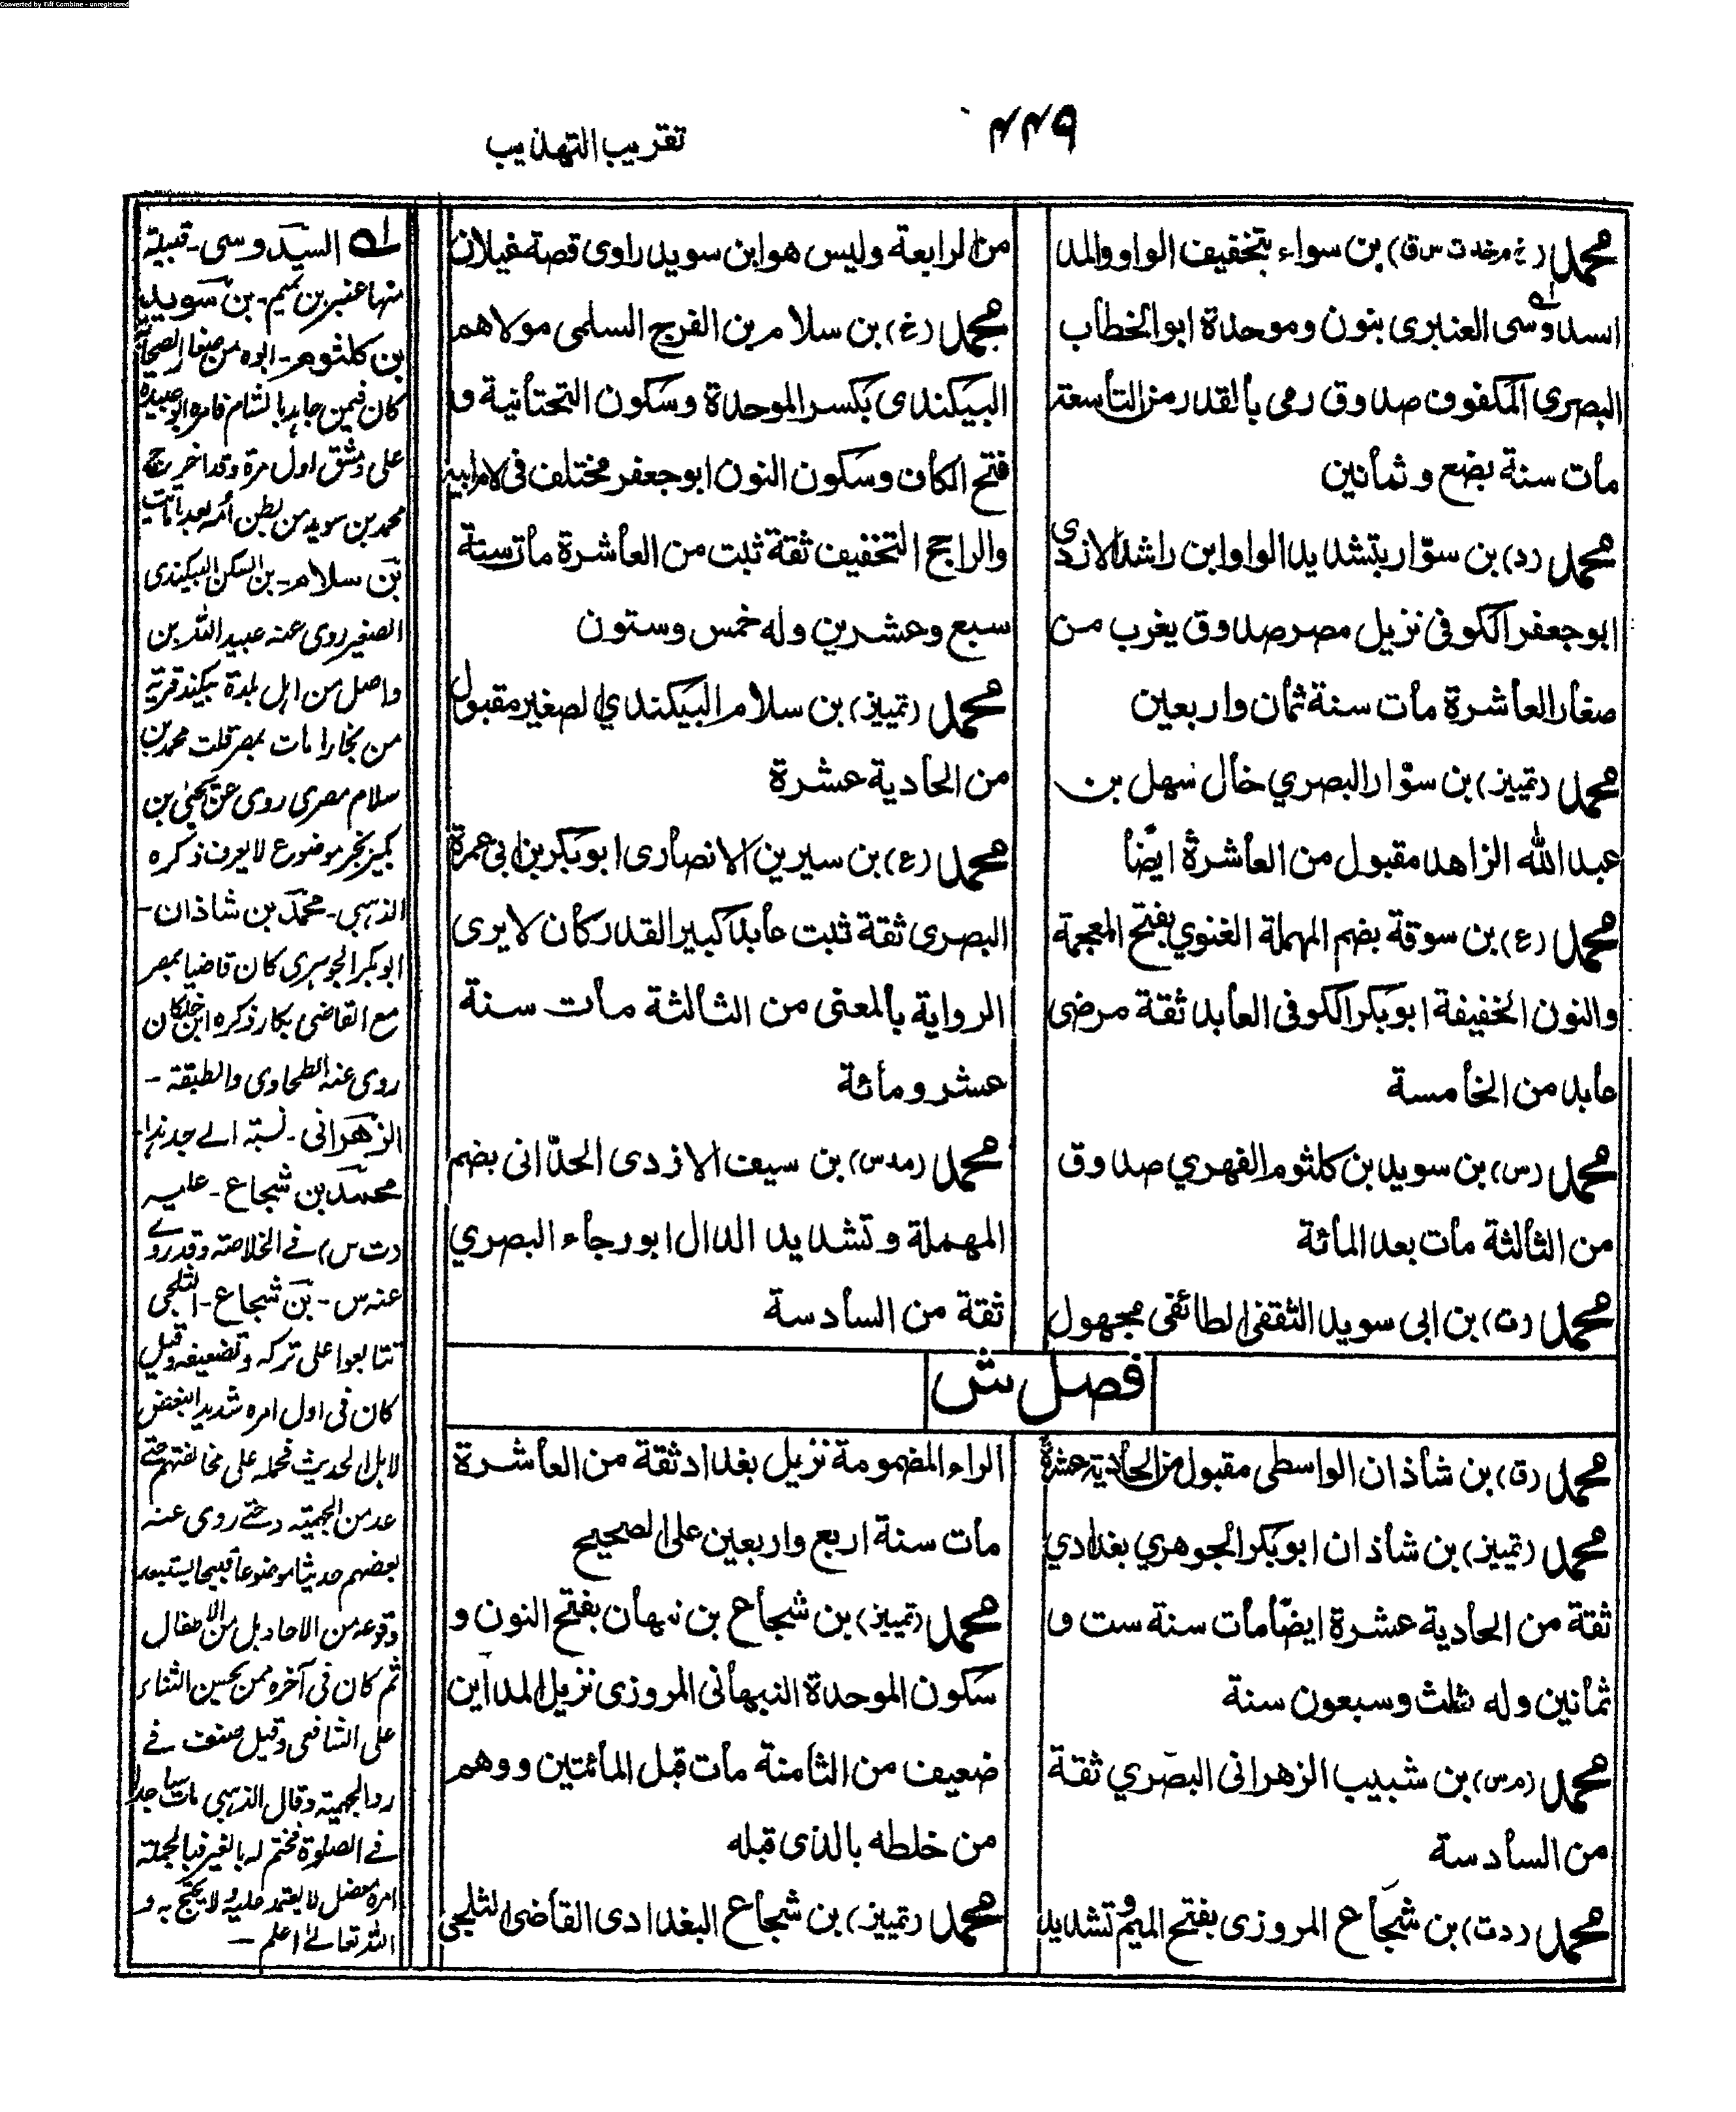 Converted by Tiff Combine - unregistered
٤٤٩
تقريب التهذيب
محمد (خ م خد ت س ق) بن سواء بتخفيف الواو والمد
السدوسى العنبرى بنون وموحدة ابو الخطاب
البصري المكفوف صدوق رمى بالقدر من التاسعة
مات سنة بضع وثمانين
محمد (د) بن سوّار بتشديد الواو ابن راشد الازدى
ابو جعفر الكوفى نزيل مصر صدوق يغرب من
صغار العاشرة مات سنة ثمان واربعين
محمد (تمييز) بن سوّار البصري خال سهل بن
عبد الله الزاهد مقبول من العاشرة ايضا
محمد (ع) بن سوقة بضم المهملة الغنوي بفتح المعجمة
والنون الخفيفة ابو بكر الكوفى العابد ثقة مرضى
عابد من الخامسة
محمد (س) بن سويد بن كلثوم الفهري صدوق
من الثالثة مات بعد المائة
محمد (ت) بن ابى سويد الثقفى الطائفى مجهول
من الرابعة وليس هو ابن سويد راوى قصة غيلان
محمد (خ) بن سلام بن الفرج السلمى مولاهم
البيكندى بكسر الموحدة وسكون التحتانية و
فتح الكاف وسكون النون ابو جعفر مختلف فى لام ابيه
والراجح التخفيف ثقة ثبت من العاشرة مات سنة
سبع وعشرين وله خمس وستون
محمد (تمييز) بن سلام البيكندي الصغير مقبول
من الحادية عشرة
محمد (ع) بن سيرين الانصارى ابو بكر بن ابى عمرة
البصرى ثقة ثبت عابد كبير القدر كان لا يرى
الرواية بالمعنى من الثالثة مات سنة
عشر ومائة
محمد (مد س) بن سيف الازدى الحدّانى بضم
المهملة وتشديد الدال ابو رجاء البصري
ثقة من السادسة
فصل ش
محمد (ق) بن شاذان الواسطى مقبول من الحادية عشرة
محمد (تمييز) بن شاذان ابو بكر الجوهري بغدادي
ثقة من الحادية عشرة ايضا مات سنة ست و
ثمانين وله ثلث وسبعون سنة
محمد (م س) بن شبيب الزهرانى البصري ثقة
من السادسة
محمد (د ت) بن شجاع المروزى بفتح الميم وتشديد
الراء المضمومة نزيل بغداد ثقة من العاشرة
مات سنة اربع واربعين على الصحيح
محمد (تمييز) بن شجاع بن نبهان بفتح النون و
سكون الموحدة النبهانى المروزى نزيل المداين
ضعيف من الثامنة مات قبل المائتين ووهم
من خلطه بالذى قبله
محمد (تمييز) بن شجاع البغدادى القاضى الثلجى
له السيدوسى - قبيلة
منها عنبر بن تميم - بن سويد
بن كلثوم - ابوه من صغار الصحابة
كان فيمن جاهد بالشام فامره ابو عبيدة
على دمشق اول مرة وقد اخرج
محمد بن سويد من بطن امه بعد ما ماتت
بن سلام - بن السكن البيكندى
الصغير روى عنه عبيد الله بن
واصل من اهل بلدة بيكند قرية
من بخارا مات بمصر قلت محمد بن
سلام مصرى روى عن يحيى بن
بكير بخبر موضوع لا يعرف ذكره
الذهبى - محمد بن شاذان -
ابو بكر الجوهرى كان قاضيا بمصر
مع القاضى بكار ذكره ابن خلكان
روى عنه الطحاوى والطبقة -
الزهرانى - نسبة الے جد
محمد بن شجاع - عليه
(د ت س) فے الخلاصة وقد روے
عنه س - بن شجاع - الثلجى
تتابعوا على تركه وتضعيفه وقيل
كان فى اول امره شديد البغض
لاهل الحديث فحمله على مخالفتهم حتے
عد من الجهمية حتے روى عنه
بعضهم حديثا موضوعا قبيحا يستبعد
وقوعه من الاحاد بل من الاطفال
ثم كان فى آخره ممن يحسن الثناء
على الشافعى وقيل صنف فے
رد الجهمية وقال الذهبى مات ساجدا
فے الصلوة فختم له بالخير فبالجملة
امره معضل لا يعتمد عليه ولا يحتج به و
الله تعالے اعلم -